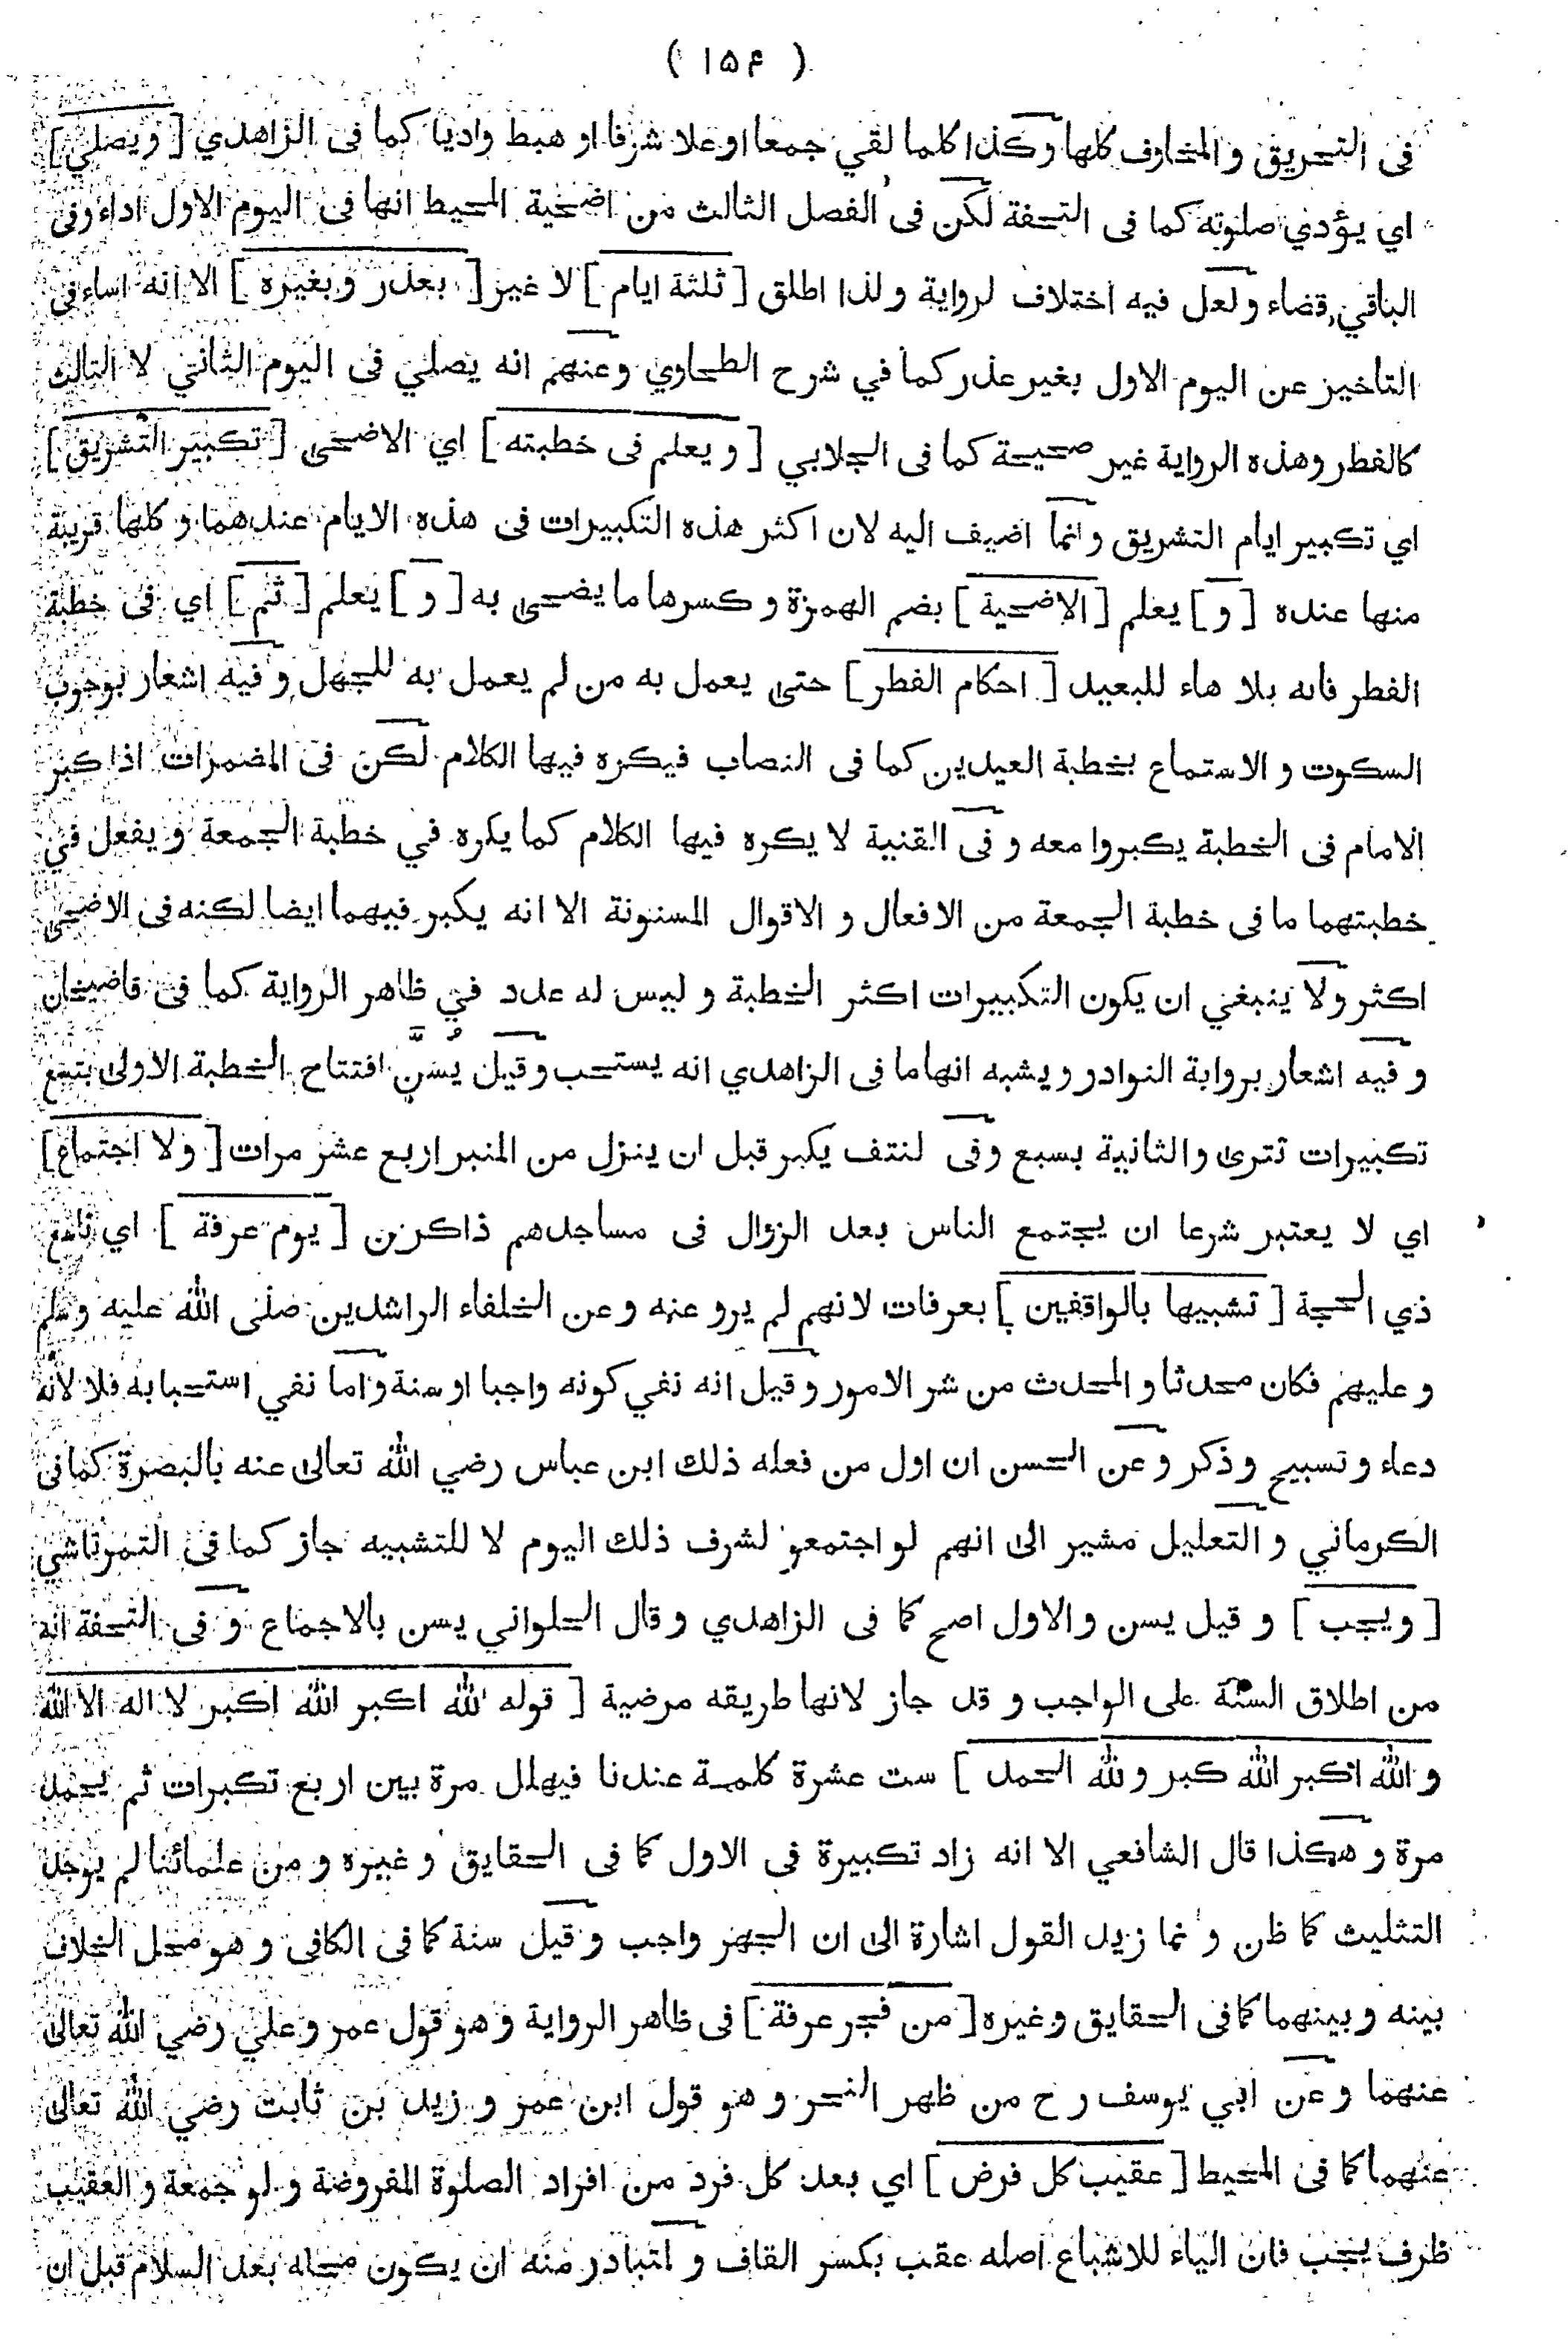 ( ١٥۴ )
فى التحريق و المخاوف كلها وكذا كلما لقي جمعا او علا شرفا او هبط واديا كما فى الزاهدي [ ويصلي ]
اي يؤدي صلوته كما فى التحفة لكن فى الفصل الثالث من اضحية المحيط انها فى اليوم الاول اداء وفى
الباقي قضاء ولعل فيه اختلاف لرواية ولذا اطلق [ ثلثة ايام ] لا غير [ بعذر وبغيره ] الا انه اساء فى
التاخير عن اليوم الاول بغير عذر كما في شرح الطحاوي وعنهم انه يصلي فى اليوم الثاني لا الثالث
كالفطر وهذه الرواية غير صحيحة كما فى الجلابي [ و يعلم فى خطبته ] اي الاضحى [ تكبير التشريق ]
اي تكبير ايام التشريق وانما اضيف اليه لان اكثر هذه التكبيرات فى هذه الايام عندهما و كلها قريبة
منها عنده [ و ] يعلم [ الاضحية ] بضم الهمزة و كسرها ما يضحى به [ و ] يعلم [ ثم ] اي فى خطبة
الفطر فانه بلا هاء للبعيد [ احكام الفطر ] حتى يعمل به من لم يعمل به للجهل و فيه اشعار بوجوب
السكوت و الاستماع بخطبة العيدين كما فى النصاب فيكره فيها الكلام لكن فى المضمرات اذا كبر
الامام فى الخطبة يكبروا معه و فى القنية لا يكره فيها الكلام كما يكره في خطبة الجمعة و يفعل في
خطبتهما ما فى خطبة الجمعة من الافعال و الاقوال المسنونة الا انه يكبر فيهما ايضا لكنه فى الاضحى
اكثر ولا ينبغي ان يكون التكبيرات اكثر الخطبة و ليس له عدد في ظاهر الرواية كما فى قاضيخان
و فيه اشعار برواية النوادر و يشبه انها ما فى الزاهدي انه يستحب وقيل يُسَنّ افتتاح الخطبة الاولى بتسع
تكبيرات تترى والثانية بسبع وفى لنتف يكبر قبل ان ينزل من المنبر اربع عشر مرات [ ولا اجتماع ]
اي لا يعتبر شرعا ان يجتمع الناس بعد الزوال فى مساجدهم ذاكرن [ يوم عرفة ] اي تاسع
ذي الحجة [ تشبيها بالواقفين ] بعرفات لانهم لم يرو عنه و عن الخلفاء الراشدين صلى الله عليه وسلم
و عليهم فكان محدثا و المحدث من شر الامور و قيل انه نفي كونه واجبا او سنة واما نفي استحبابه فلا لانه
دعاء و تسبيح و ذكر و عن الحسن ان اول من فعله ذلك ابن عباس رضي الله تعالى عنه بالبصرة كما فى
الكرماني و التعليل مشير الى انهم لو اجتمعو لشرف ذلك اليوم لا للتشبيه جاز كما فى التمرتاشي
[ ويجب ] و قيل يسن والاول اصح كما فى الزاهدي و قال الحلواني يسن بالاجماع و فى التحفة انه
من اطلاق السنة على الواجب و قد جاز لانها طريقه مرضية [ قوله الله اكبر الله اكبر لا اله الا الله
و الله اكبر الله كبر ولله الحمد ] ست عشرة كلمة عندنا فيهلل مرة بين اربع تكبرات ثم يحمد
مرة و هكذا قال الشافعي الا انه زاد تكبيرة فى الاول كما فى الحقايق و غيره و من علمائنا لم يوجد
التثليث كما ظن و نما زيد القول اشارة الى ان الجهر واجب و قيل سنة كما فى الكافى و هو محل الخلاف
بينه و بينهما كما فى الحقايق وغيره [ من فجر عرفة ] فى ظاهر الرواية و هو قول عمر و علي رضي الله تعالى
عنهما و عن ابي يوسف رح من ظهر النحر و هو قول ابن عمر و زيد بن ثابت رضي الله تعالى
عنهما كما فى المحيط [ عقيب كل فرض ] اي بعد كل فرد من افراد الصلوة المفروضة و لو جمعة و العقيب
ظرف يجب فان الياء للاشباع اصله عقب بكسر القاف و لتبادر منه ان يكون محله بعد السلام قبل ان